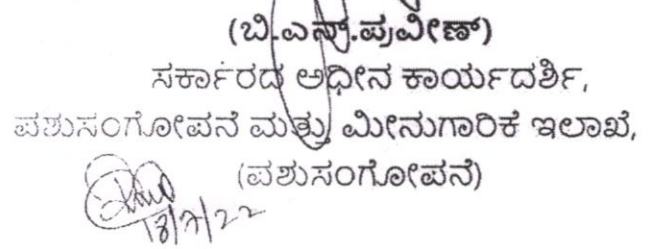 (ಬಿ.ಎನ್.ಪ್ರವೀಣ್)
ಸರ್ಕಾರದ ಅಧೀನ ಕಾರ್ಯದರ್ಶಿ,
ಪಶುಸಂಗೋಪನೆ ಮತ್ತು ಮೀನುಗಾರಿಕೆ ಇಲಾಖೆ,
(ಪಶುಸಂಗೋಪನೆ)
18/7/22